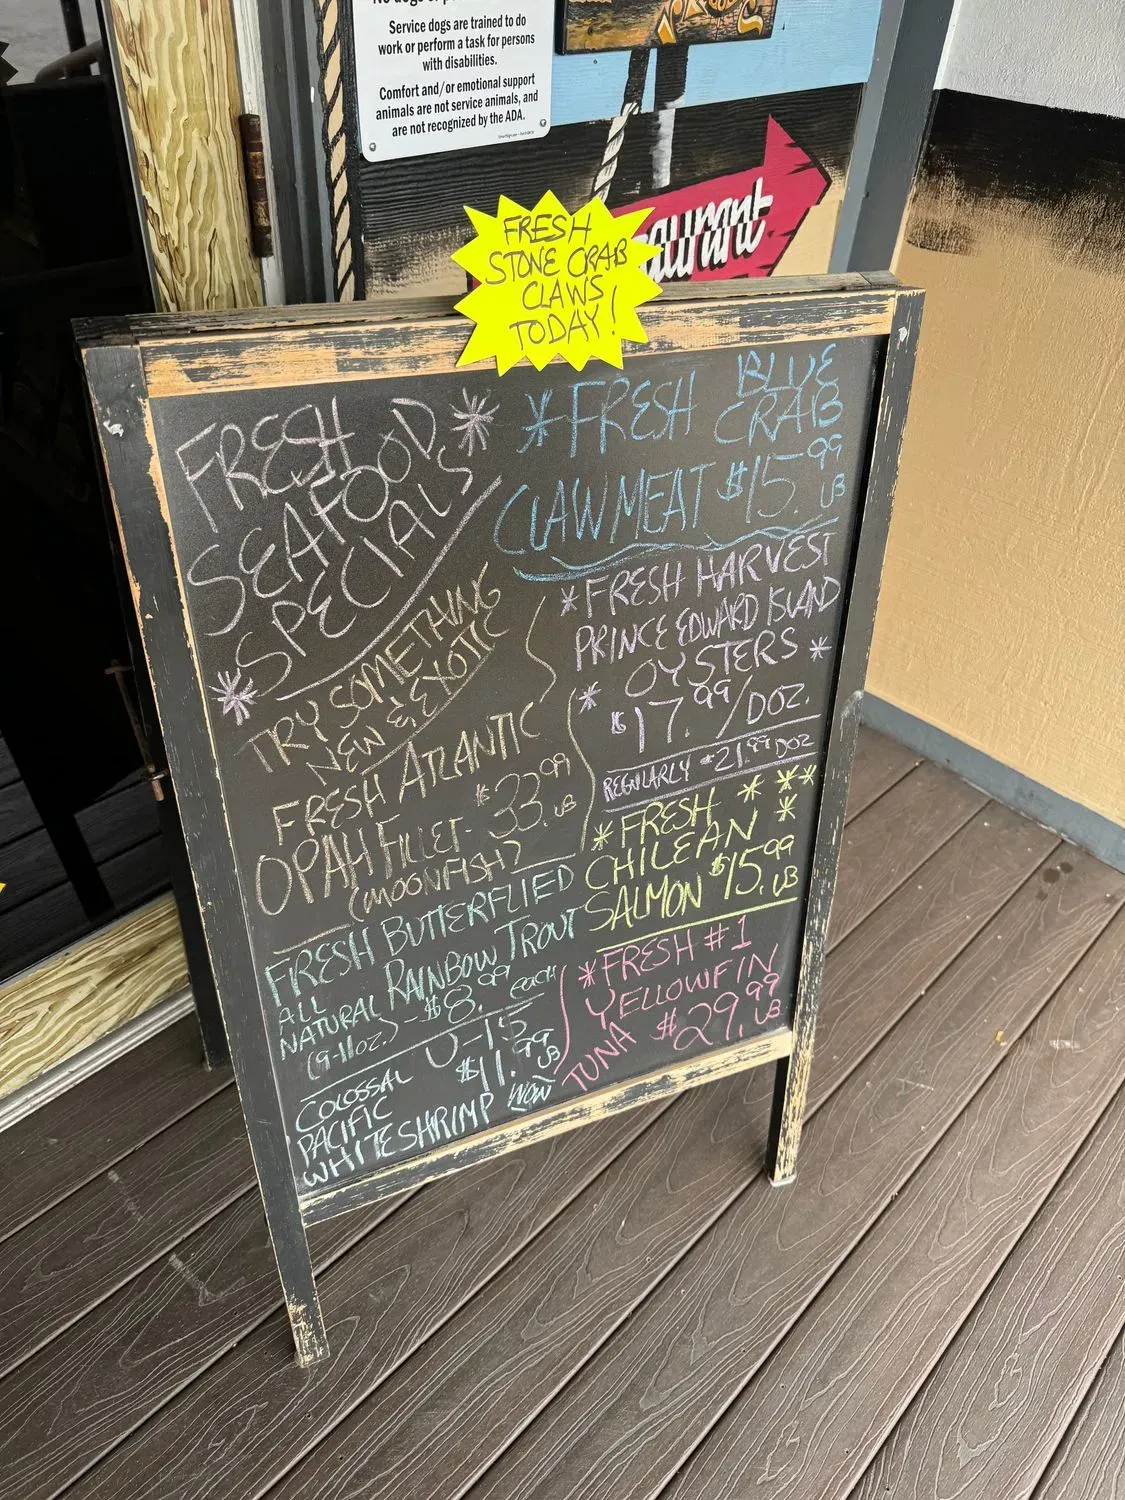 Service dogs are trained to do
work or perform a task for persons
with disabilities.
Comfort and/or emotional support
animals are not service animals, and
are not recognized by the ADA.
FRESH
STONE CRAB
CLAWS
TODAY!
FRESH
SEAFOOD
SPECIALS
TRY SOMETHING
NEW & EXOTIC
FRESH ATLANTIC
OPAH FILLET - $33.99 LB
(MOONFISH)
FRESH BUTTERFLIED
ALL NATURAL RAINBOW TROUT
(9-11oz.) - $8.99 each
COLOSSAL U-15
PACIFIC $11.99 LB
WHITE SHRIMP WOW
*FRESH BLUE
CRAB
CLAWMEAT $15.99 LB
*FRESH HARVEST
PRINCE EDWARD ISLAND
OYSTERS *
* $17.99/DOZ.
REGULARLY $21.99 DOZ
*FRESH
CHILEAN
SALMON $15.99 LB
*FRESH #1
YELLOWFIN
TUNA $29.99 LB